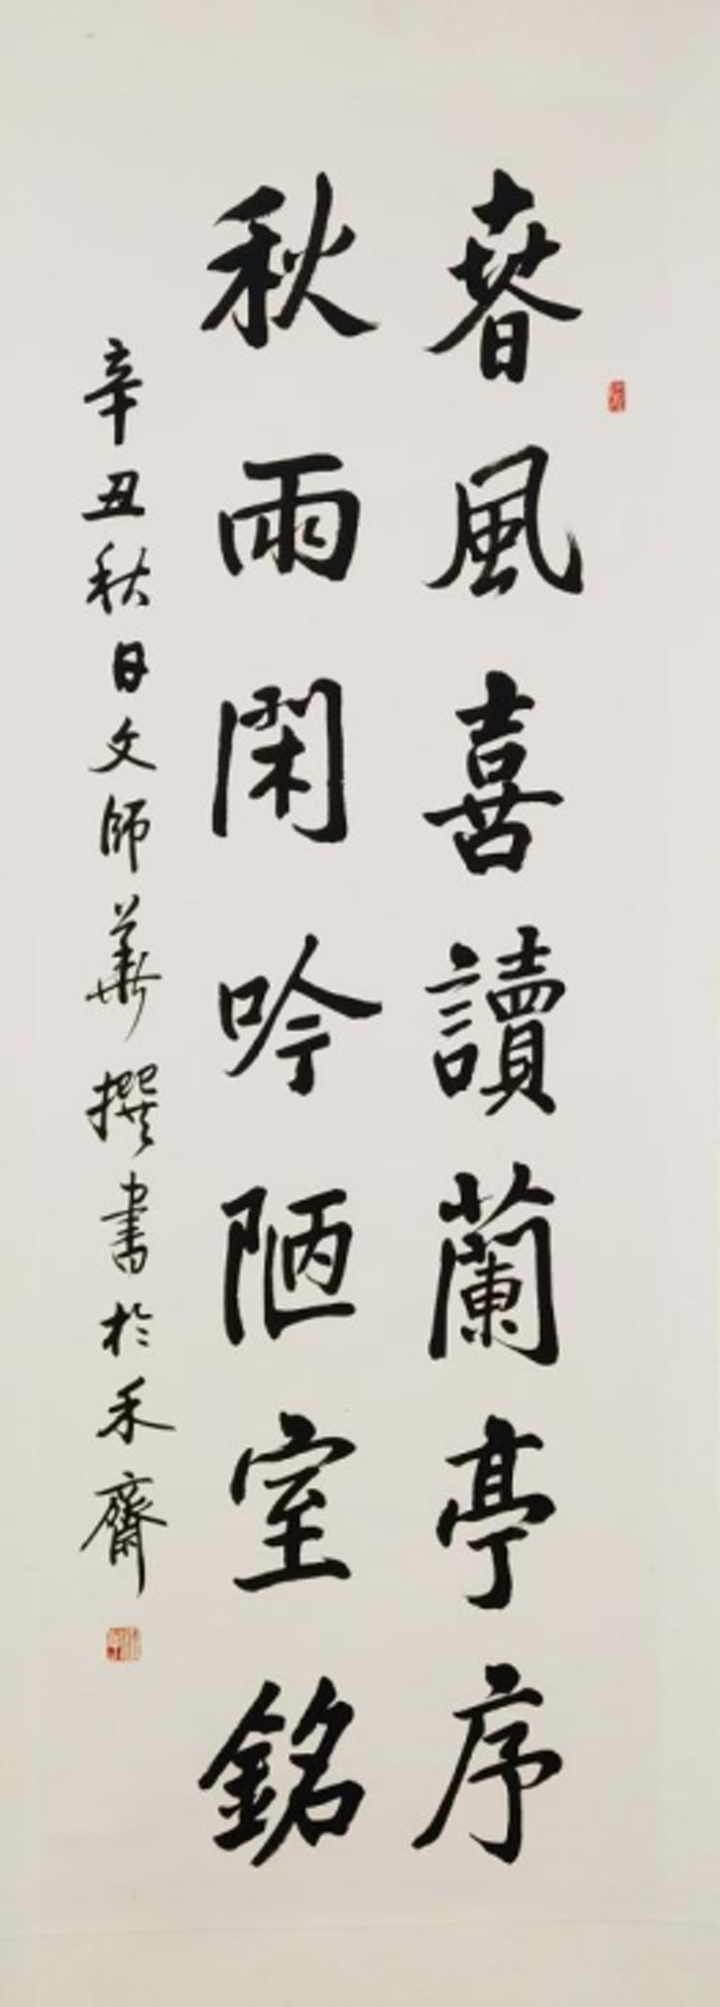 春風喜讀蘭亭序
秋雨閑吟陋室銘
辛丑秋日文師華撰書於禾齋